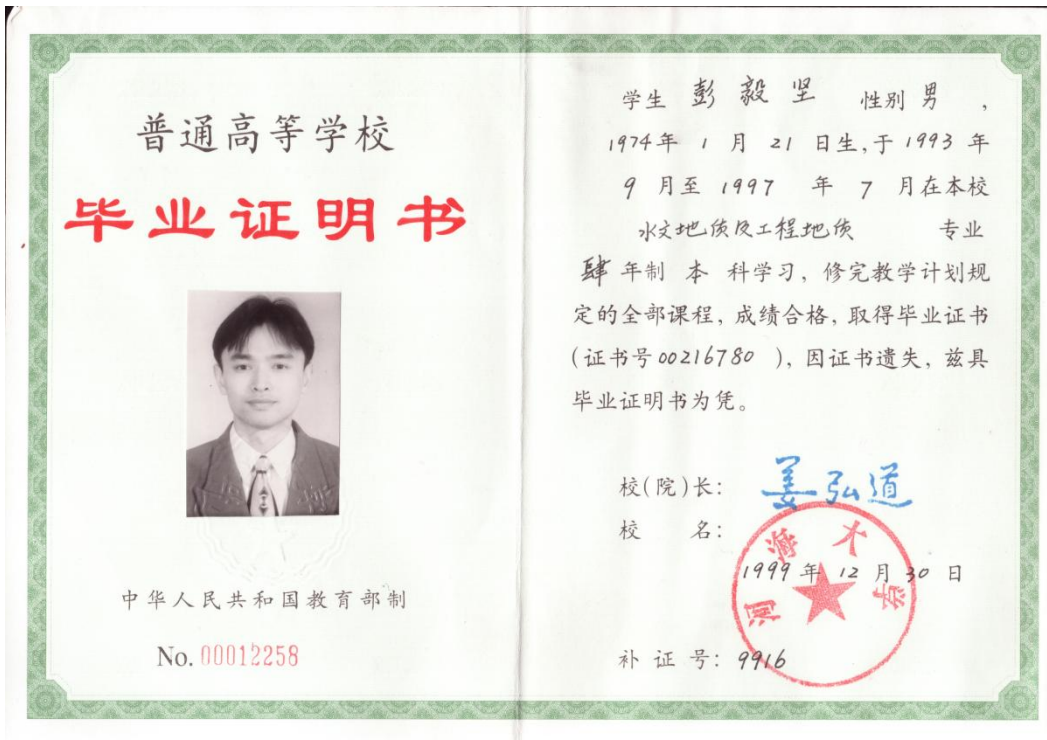 普通高等学校
毕业证明书
中华人民共和国教育部制
No. 00012258
学生 彭毅坚 性别 男 ,
1974年 1 月 21 日生,于 1993 年
9 月至 1997 年 7 月在本校
水文地质及工程地质 专业
肆 年制 本 科学习, 修完教学计划规
定的全部课程, 成绩合格, 取得毕业证书
(证书号 00216780 ), 因证书遗失, 兹具
毕业证明书为凭。
校(院)长: 姜弘道
校 名:
河海大学
1999 年 12 月 30 日
补 证 号: 9916